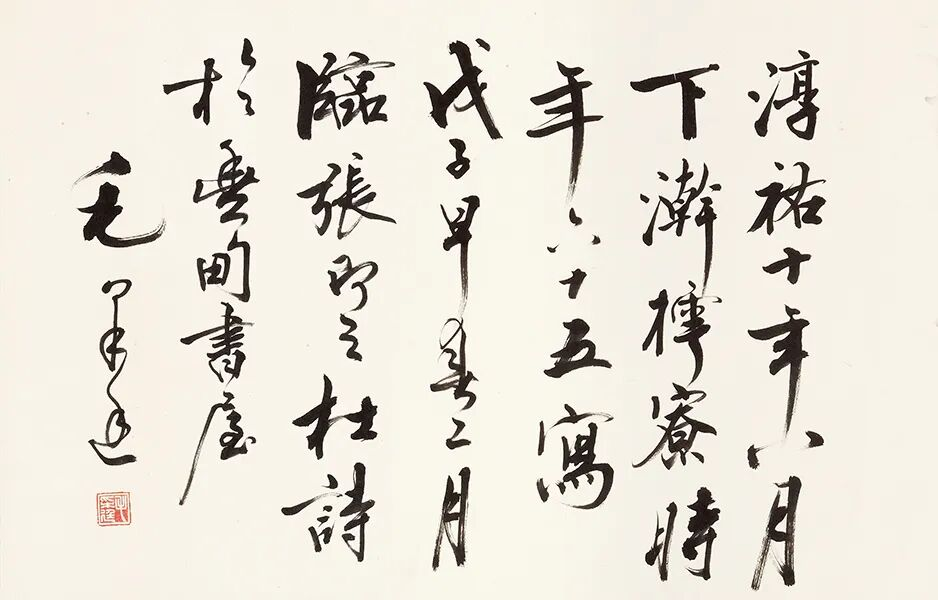 淳祐十年八月
下澣樗寮時
年六十五寫
戊子早春二月
臨張即之杜詩
於書屋
毛